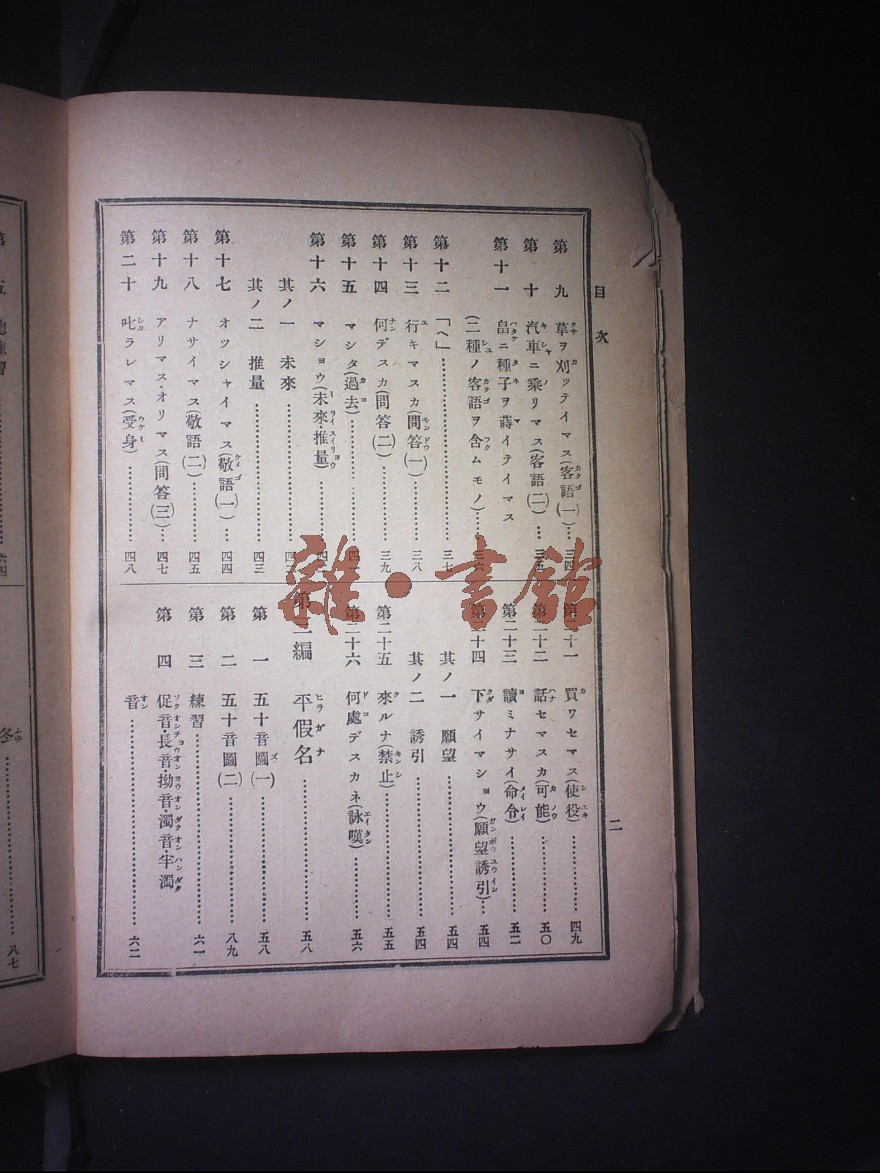 目次
二
第九 草ヲ刈ッテイマス(客語(一)…三四
第十 汽車ニ乘リマス(客語(二)…三五
第十一 畠ニ種子ヲ蒔イテイマス
(二種ノ客語ヲ含ムモノ)…三六
第十二 「ヘ」…三七
第十三 行キマスカ(問答(一)…三八
第十四 何デスカ(問答(二)…三九
第十五 マシタ(過去)…
第十六 マショウ(未來・推量)…
其ノ一 未來…
其ノ二 推量…四三
第十七 オッシャイマス(敬語(一)…四四
第十八 ナサイマス(敬語(二)…四五
第十九 アリマス・オリマス(問答(三)…四七
第二十 叱ラレマス(受身)…四八
第二十一 買ワセマス(使役)…四九
第二十二 話セマスカ(可能)…五〇
第二十三 讀ミナサイ(命令)…五二
第二十四 下サイマショウ(願望誘引)…五四
其ノ一 願望…五四
其ノ二 誘引…五四
第二十五 來ルナ(禁止)…五五
第二十六 何處デスカネ(詠嘆)…五六
第二編 平假名…五八
第一 五十音圖(一)…五八
第二 五十音圖(二)…八九
第三 練習…六一
第四 促音・長音・拗音・濁音・半濁
音…六二
雜・書館
第五
練習…六四
冬…八七